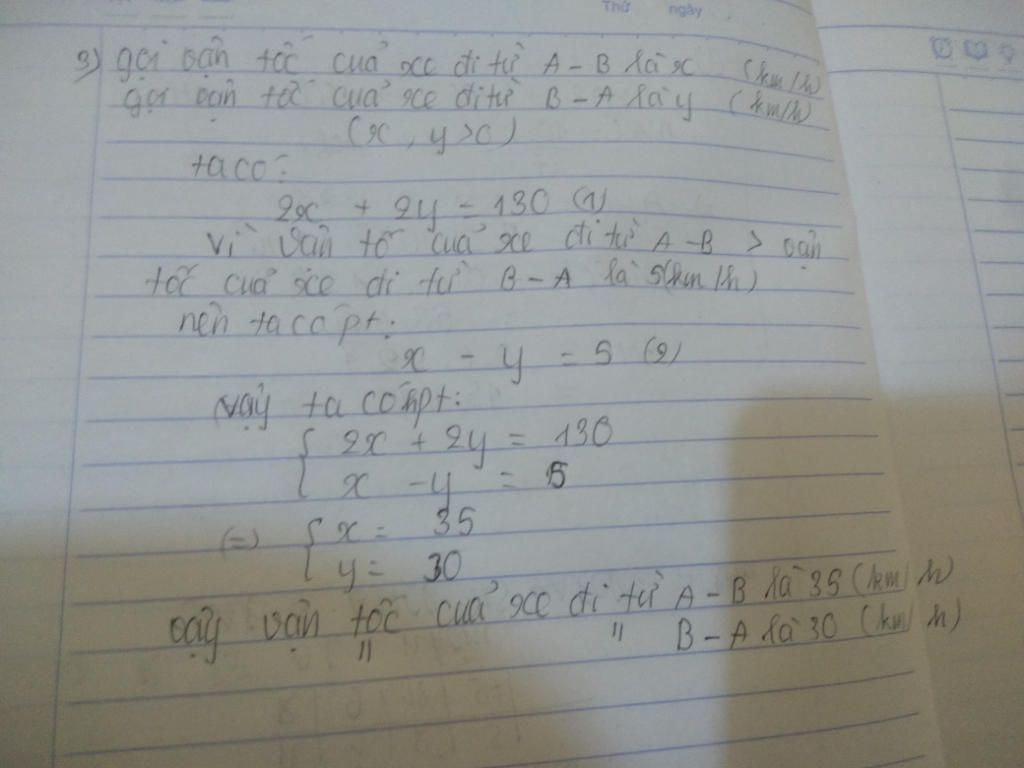 Thứ ngày
3) gọi vận tốc cuả xe đi từ A - B là x (km/h)
gọi vận tốc cuả xe đi từ B - A là y (km/h)
(x, y > 0)
ta có:
2x + 2y = 130 (1)
vì vận tố cuả xe đi từ A - B > vận
tốc cuả xe đi từ B - A là 5(km/h)
nên ta có pt:
x - y = 5 (2)
vậy ta có hpt:
{ 2x + 2y = 130
x - y = 5
(=) { x = 35
y = 30
vậy vận tốc cuả xe đi từ A - B là 35 (km/h)
" " B - A là 30 (km/h)